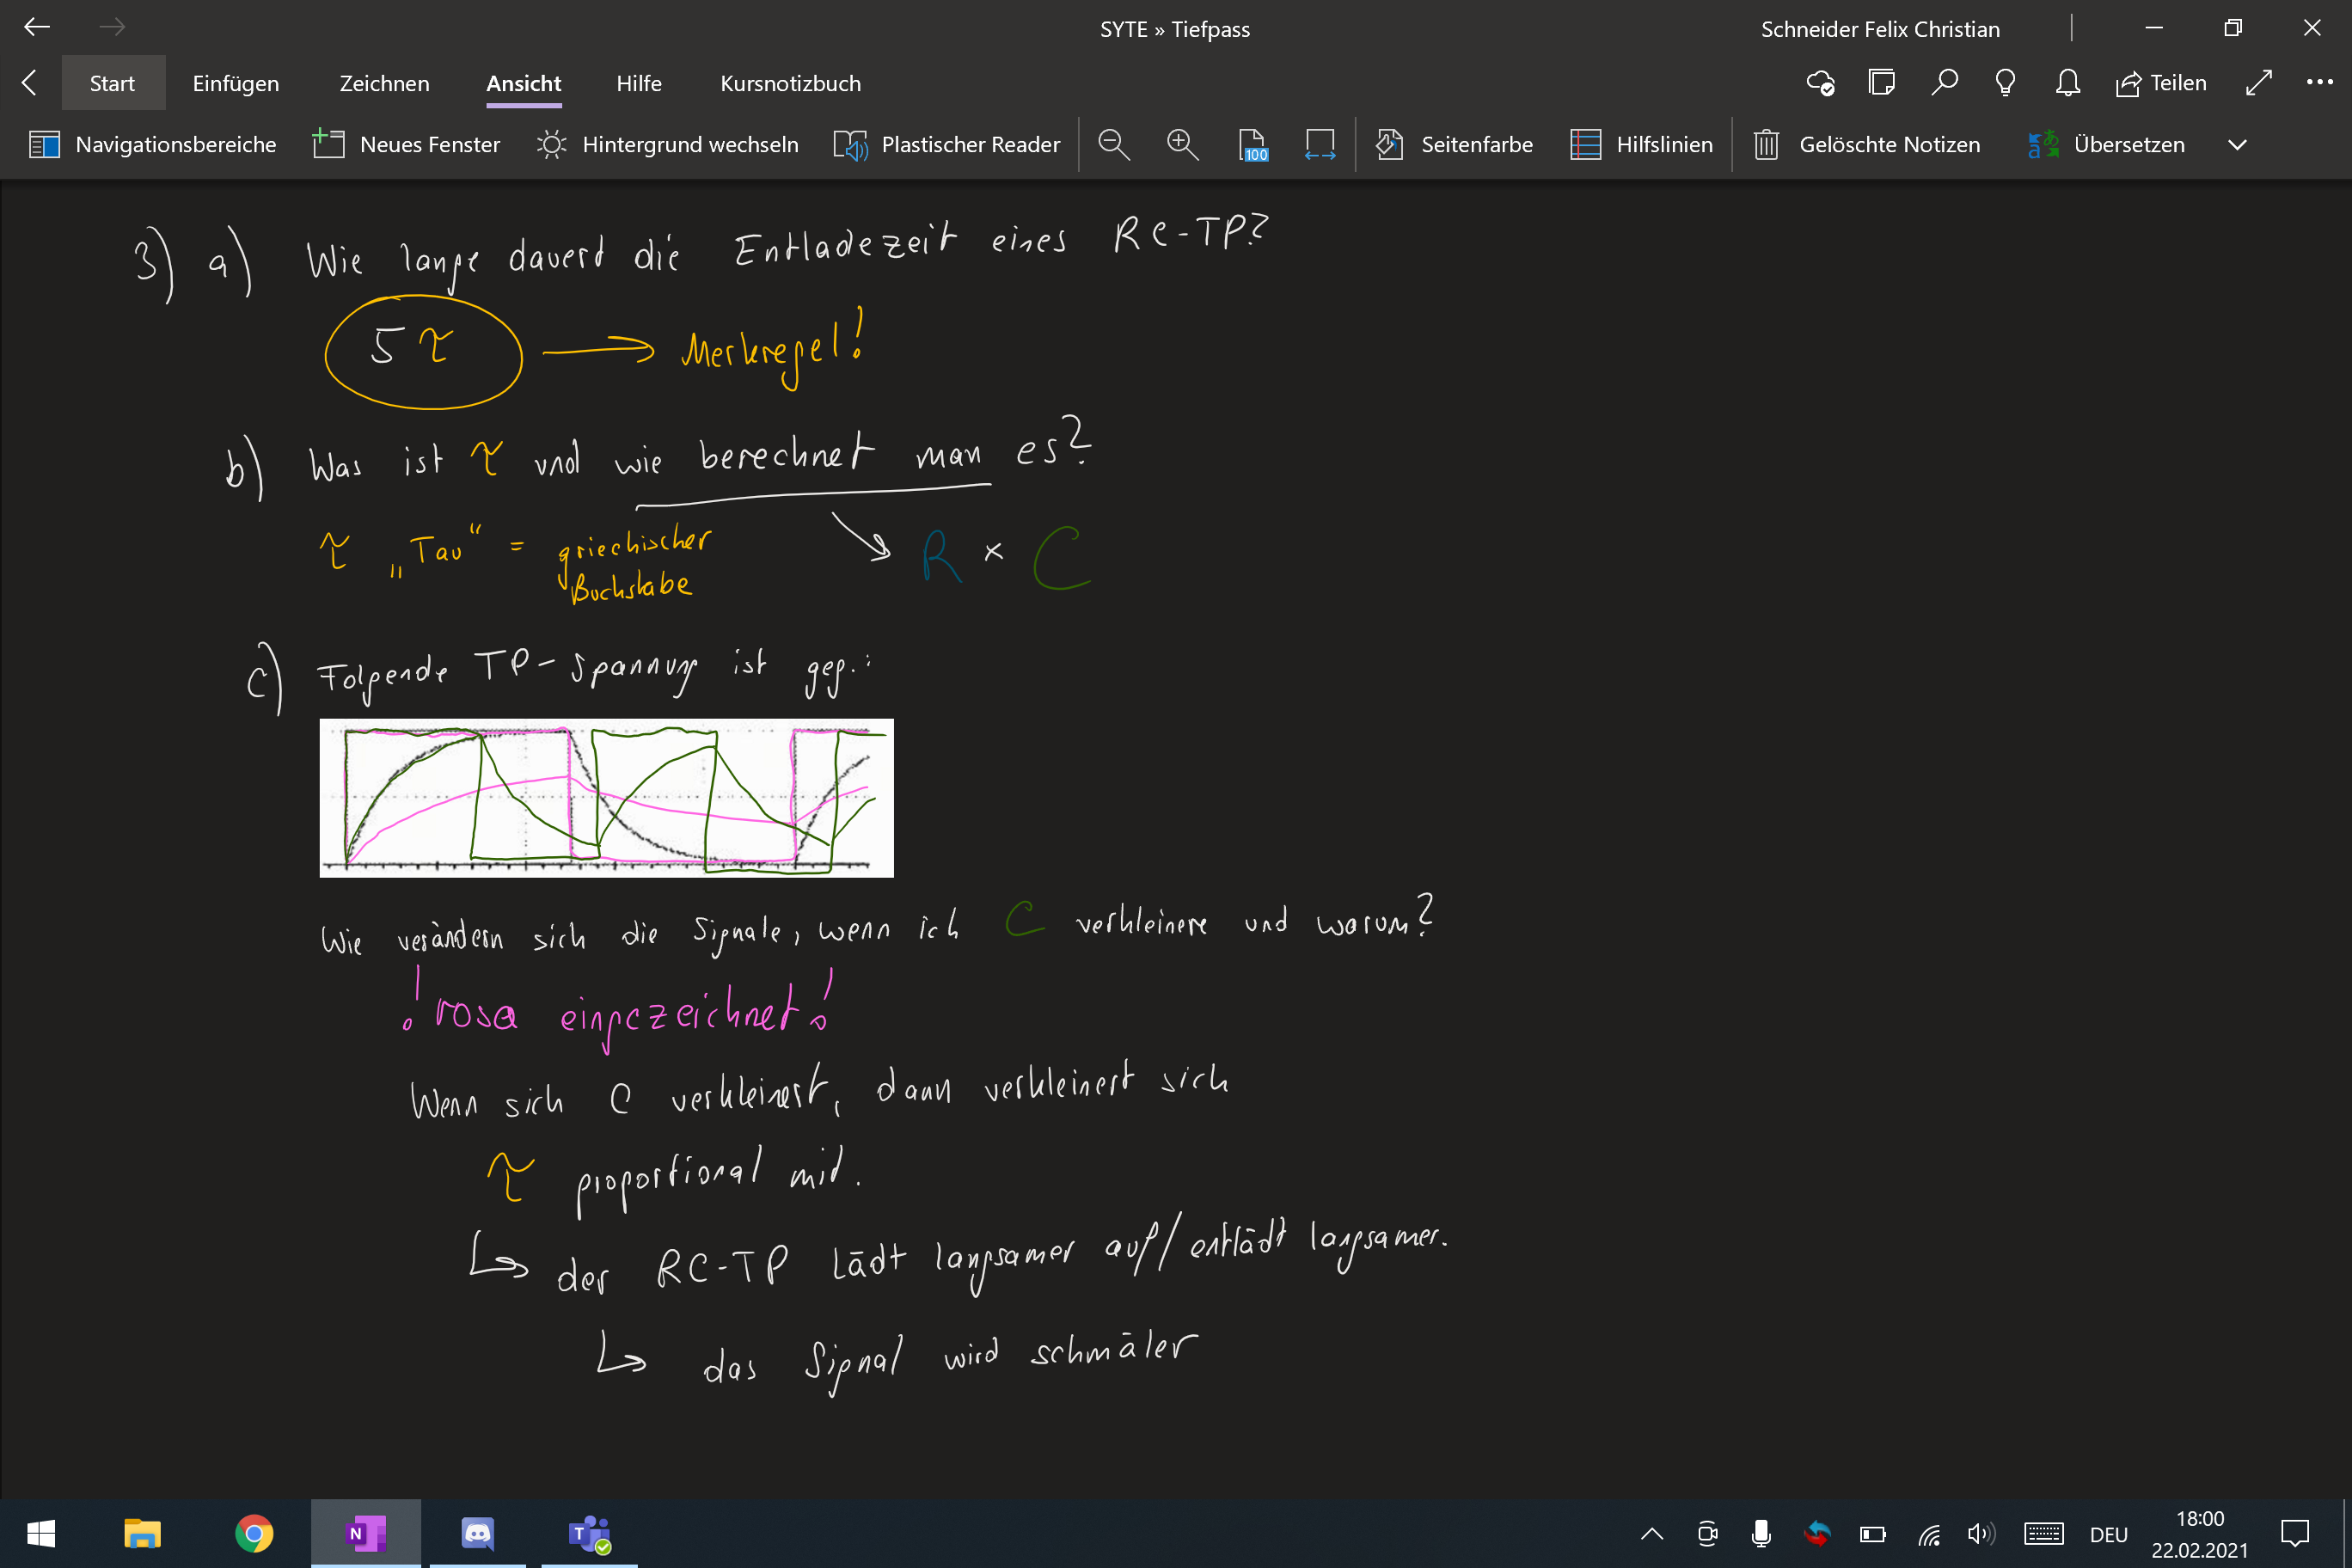 SYTE » Tiefpass
Schneider Felix Christian
Start Einfügen Zeichnen Ansicht Hilfe Kursnotizbuch Teilen
Navigationsbereiche Neues Fenster Hintergrund wechseln Plastischer Reader 100 Seitenfarbe Hilfslinien Gelöschte Notizen Übersetzen
3) a) Wie lange dauert die Entladezeit eines RC-TP?
5 τ → Merkregel!
b) Was ist τ und wie berechnet man es?
τ „Tau“ = griechischer Buchstabe
R × C
c) Folgende TP-Spannung ist geg.:
Wie verändern sich die Signale, wenn ich C verkleinere und warum?
! rosa eingezeichnet!
Wenn sich C verkleinert, dann verkleinert sich
τ proportional mit.
↳ der RC-TP lädt langsamer auf/entlädt langsamer.
↳ das Signal wird schmäler
DEU
18:00
22.02.2021